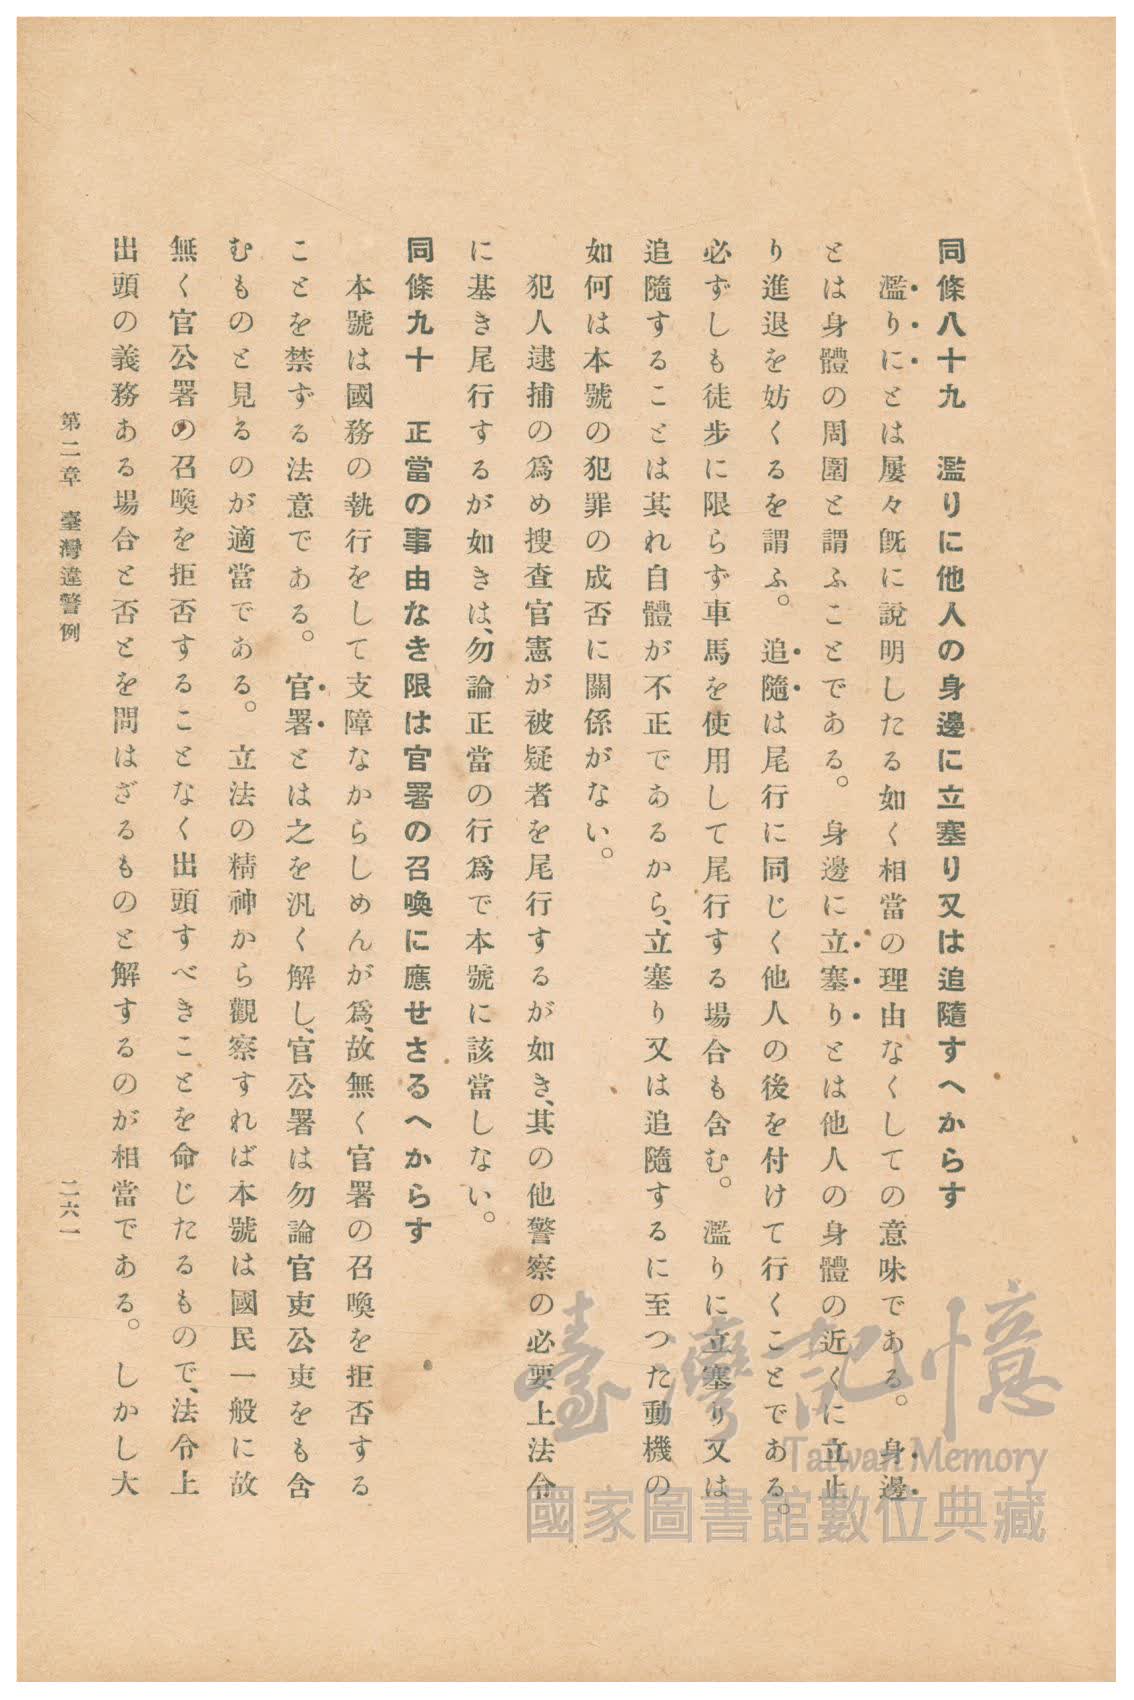 同條八十九　濫りに他人の身邊に立塞り又は追隨すへからす
濫りにとは屢々旣に說明したる如く相當の理由なくしての意味である。身邊
とは身體の周圍と謂ふことである。身邊に立塞りとは他人の身體の近くに立止
り進退を妨くるを謂ふ。追隨は尾行に同じく他人の後を付けて行くことである。
必ずしも徒步に限らず車馬を使用して尾行する場合も含む。濫りに立塞り又は
追隨することは其れ自體が不正であるから、立塞り又は追隨するに至つた動機の
如何は本號の犯罪の成否に關係がない。
犯人逮捕の爲め搜查官憲が被疑者を尾行するが如き、其の他警察の必要上法令
に基き尾行するが如きは、勿論正當の行爲で本號に該當しない。
同條九十　正當の事由なき限は官署の召喚に應せさるへからす
本號は國務の執行をして支障なからしめんが爲、故無く官署の召喚を拒否する
ことを禁ずる法意である。官署とは之を汎く解し、官公署は勿論官吏公吏をも含
むものと見るのが適當である。立法の精神から觀察すれば本號は國民一般に故
無く官公署の召喚を拒否することなく出頭すべきことを命じたるもので、法令上
出頭の義務ある場合と否とを問はざるものと解するのが相當である。しかし大
第二章　臺灣違警例
二六一
臺灣記憶
Taiwan Memory
國家圖書館數位典藏